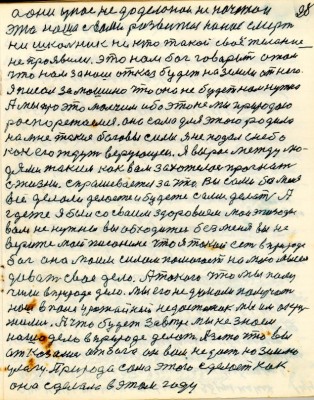 а они у нас не доделаки не начаты 98
это наше с вами развитие никак смерт
ни школник ни кто такой своё желание
не проявили. Это нам бог говорит о том
что нам за наш отказ будет на земли от него.
Я писал за мошино что она не будет нам нужна
А мы про это молчим ибо это не мы природою
роспоряжаемся. она сама для этого родила
нам не такия боговы силы я не подал с небо
как его ждут верующии. Я вырос между лю
дями таким как вам захотелос прогнат
с жизни. спрашивается за что. Вы сами без меня
всё делали делаете и будете сами делат. А
где же я был со своим здоровием мои походы
вам не нужны вы обходитес без меня вы не
верите моей писанине что я такой сет в природе
бог она моими силами помогает на мою мысел
делат свае дело. А такого что мы полу
чили в природе дело. мы его не думали получит
но в поле урожайный недостаток мы им окру
жили. А что будет завтра мы не знаем
наше дело в природе делат. А за то что вы
отказалис от бога он вам не даст на землю
влагу. Природа сама этого сделает как
она сделала в этом году